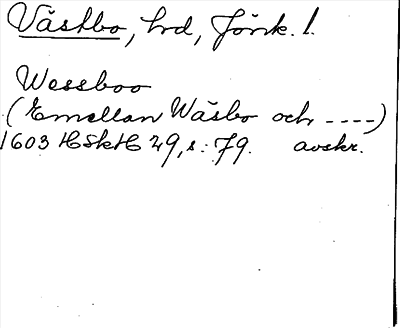 Västbo, hd, Jönk. l.
Wessboo
(Emellan Wäsbo och ----)
1603 HSkH 29, s. 79. avskr.